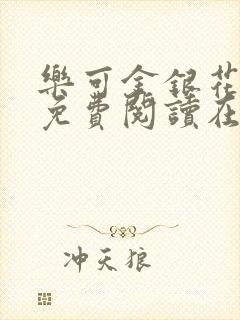 樂可金銀花
免費閱讀在
冲天狼